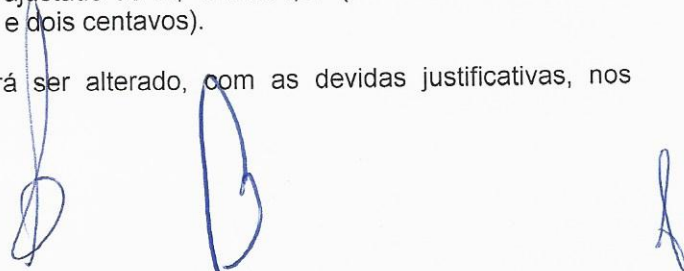 e dois centavos).
ser alterado, com as devidas justificativas, nos